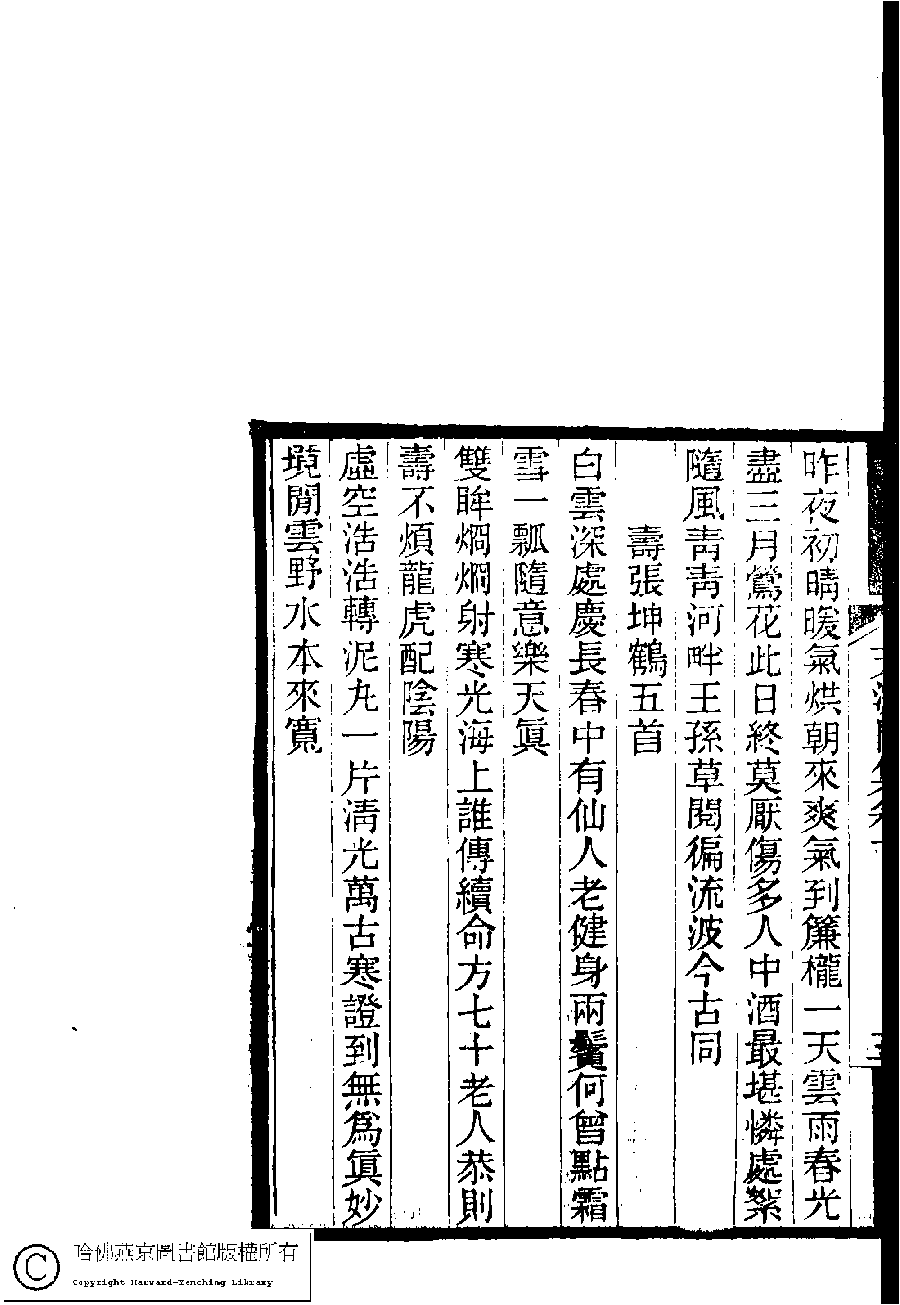 昨夜初晴暖氣烘朝來爽氣到簾櫳一天雲雨春光
盡三月鶯花此日終莫厭傷多人中酒最堪憐處絮
隨風靑靑河畔王孫草閱徧流波今古同
壽張坤鶴五首
白雲深處慶長春中有仙人老健身兩鬢何曾點霜
雪一瓢隨意樂天眞
雙眸烱烱射寒光海上誰傳續命方七十老人恭則
壽不煩龍虎配陰陽
虛空浩浩轉泥丸一片淸光萬古寒證到無爲眞妙
境閒雲野水本來寬
哈佛燕京圖書館版權所有
Copyright Harvard-Yenching Library